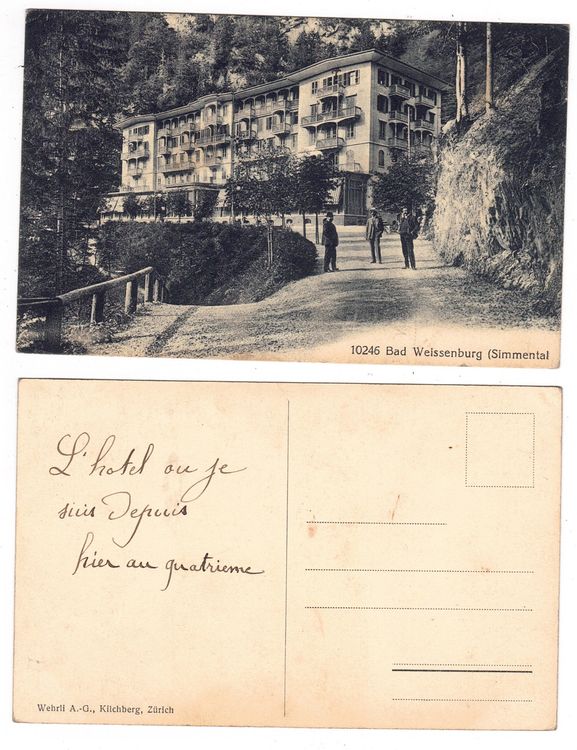 10246 Bad Weissenburg (Simmental
L'hotel ou je
suis Depuis
hier au quatrieme
Wehrli A.-G., Kilchberg, Zürich